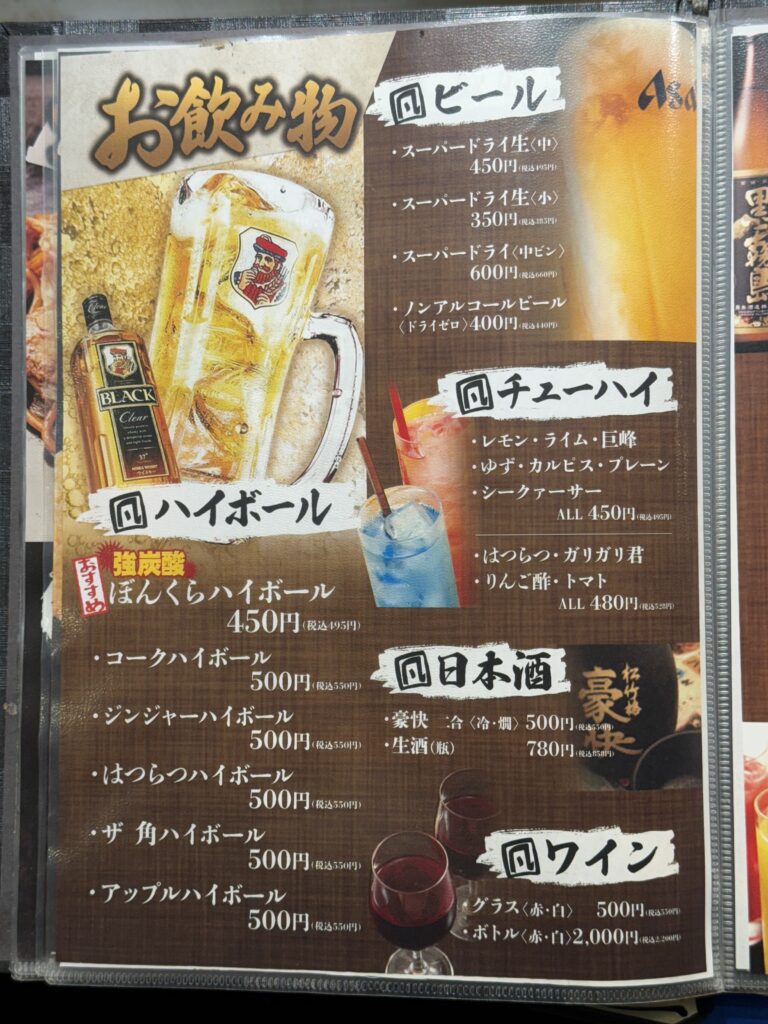 お飲み物
Clear
BLACK
Clear
37°
NIKKA WHISKY
ウイスキー
凡 ハイボール
おすすめ
強炭酸
ぼんくらハイボール
450円(税込495円)
・コークハイボール
500円(税込550円)
・ジンジャーハイボール
500円(税込550円)
・はつらつハイボール
500円(税込550円)
・ザ 角ハイボール
500円(税込550円)
・アップルハイボール
500円(税込550円)
凡 ビール
Asa
・スーパードライ生〈中〉
450円(税込495円)
・スーパードライ生〈小〉
350円(税込385円)
・スーパードライ〈中ビン〉
600円(税込660円)
・ノンアルコールビール
〈ドライゼロ〉400円(税込440円)
凡 チューハイ
・レモン・ライム・巨峰
・ゆず・カルピス・プレーン
・シークァーサー
ALL 450円(税込495円)
・はつらつ・ガリガリ君
・りんご酢・トマト
ALL 480円(税込528円)
凡 日本酒
松竹梅
豪快
・豪快 二合〈冷・燗〉500円(税込550円)
・生酒(瓶) 780円(税込858円)
凡 ワイン
・グラス〈赤・白〉 500円(税込550円)
・ボトル〈赤・白〉2,000円(税込2,200円)
黒霧島